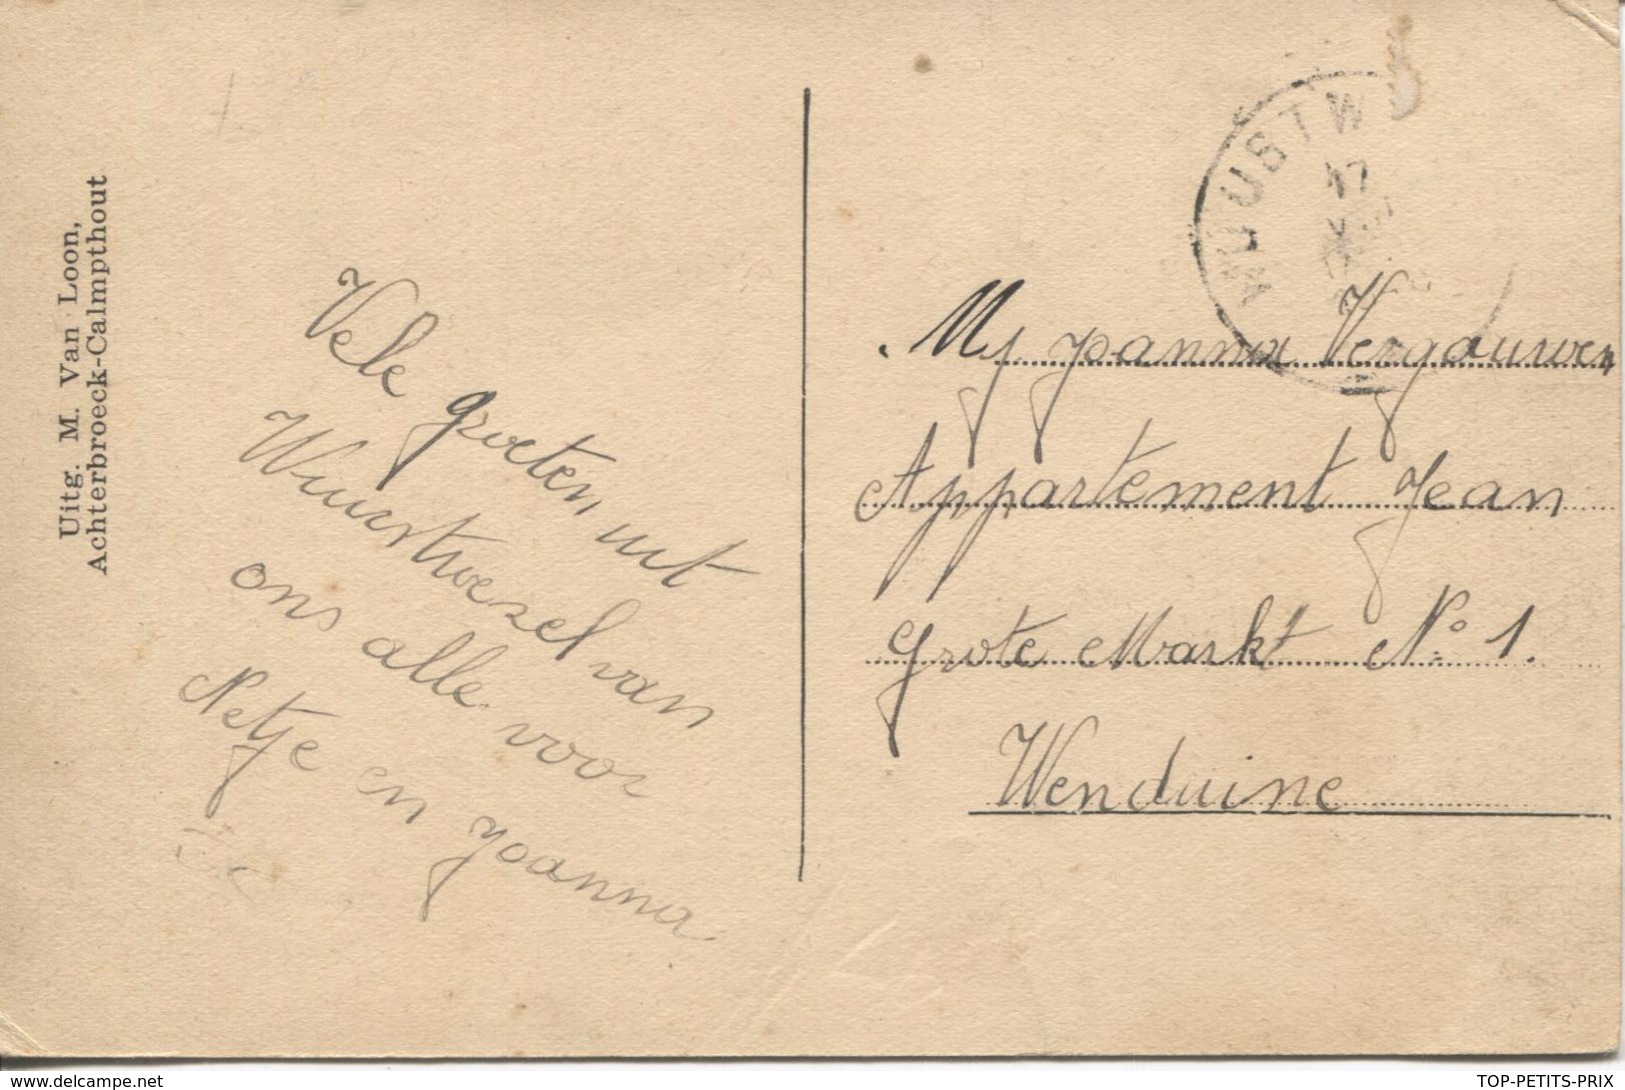 Uitg. M. Van Loon,
Achterbroeck-Calmpthout
Vele groeten uit
Wuustwezel van
ons alle voor
Netje en Joanna
WUUSTW
17
Mj Joanna Vergauwen
Appartement Jean
Grote Markt No 1.
Wenduine
www.delcampe.net
TOP-PETITS-PRIX